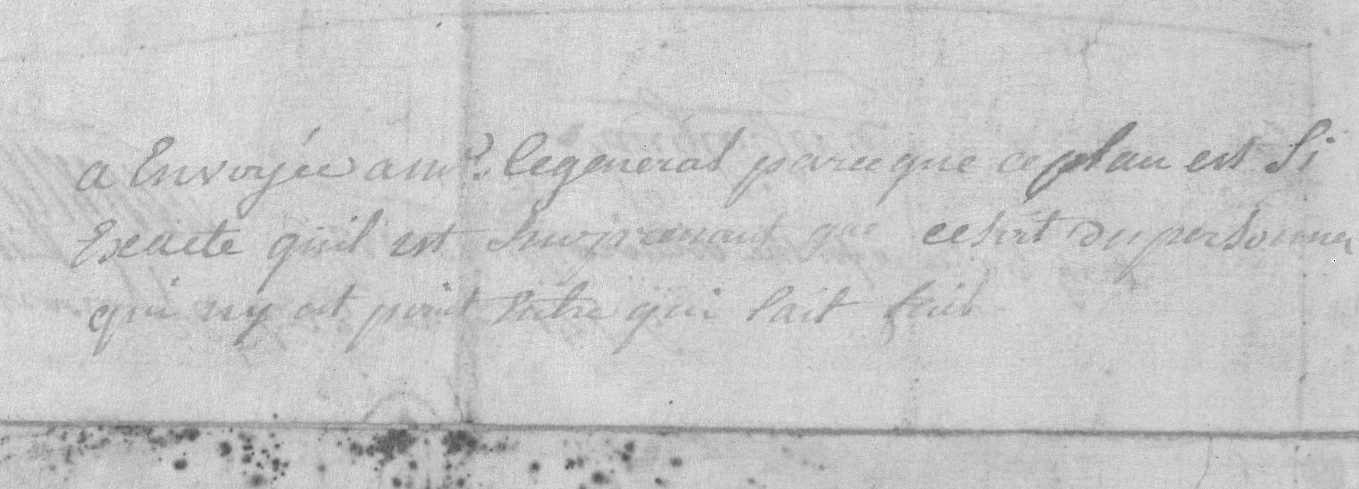 a Envoyée a mr. le general parceque ce plan est Si
Exacte quil est Surprenant que cesoit du personne
qui ny est point Entre qui lait fait